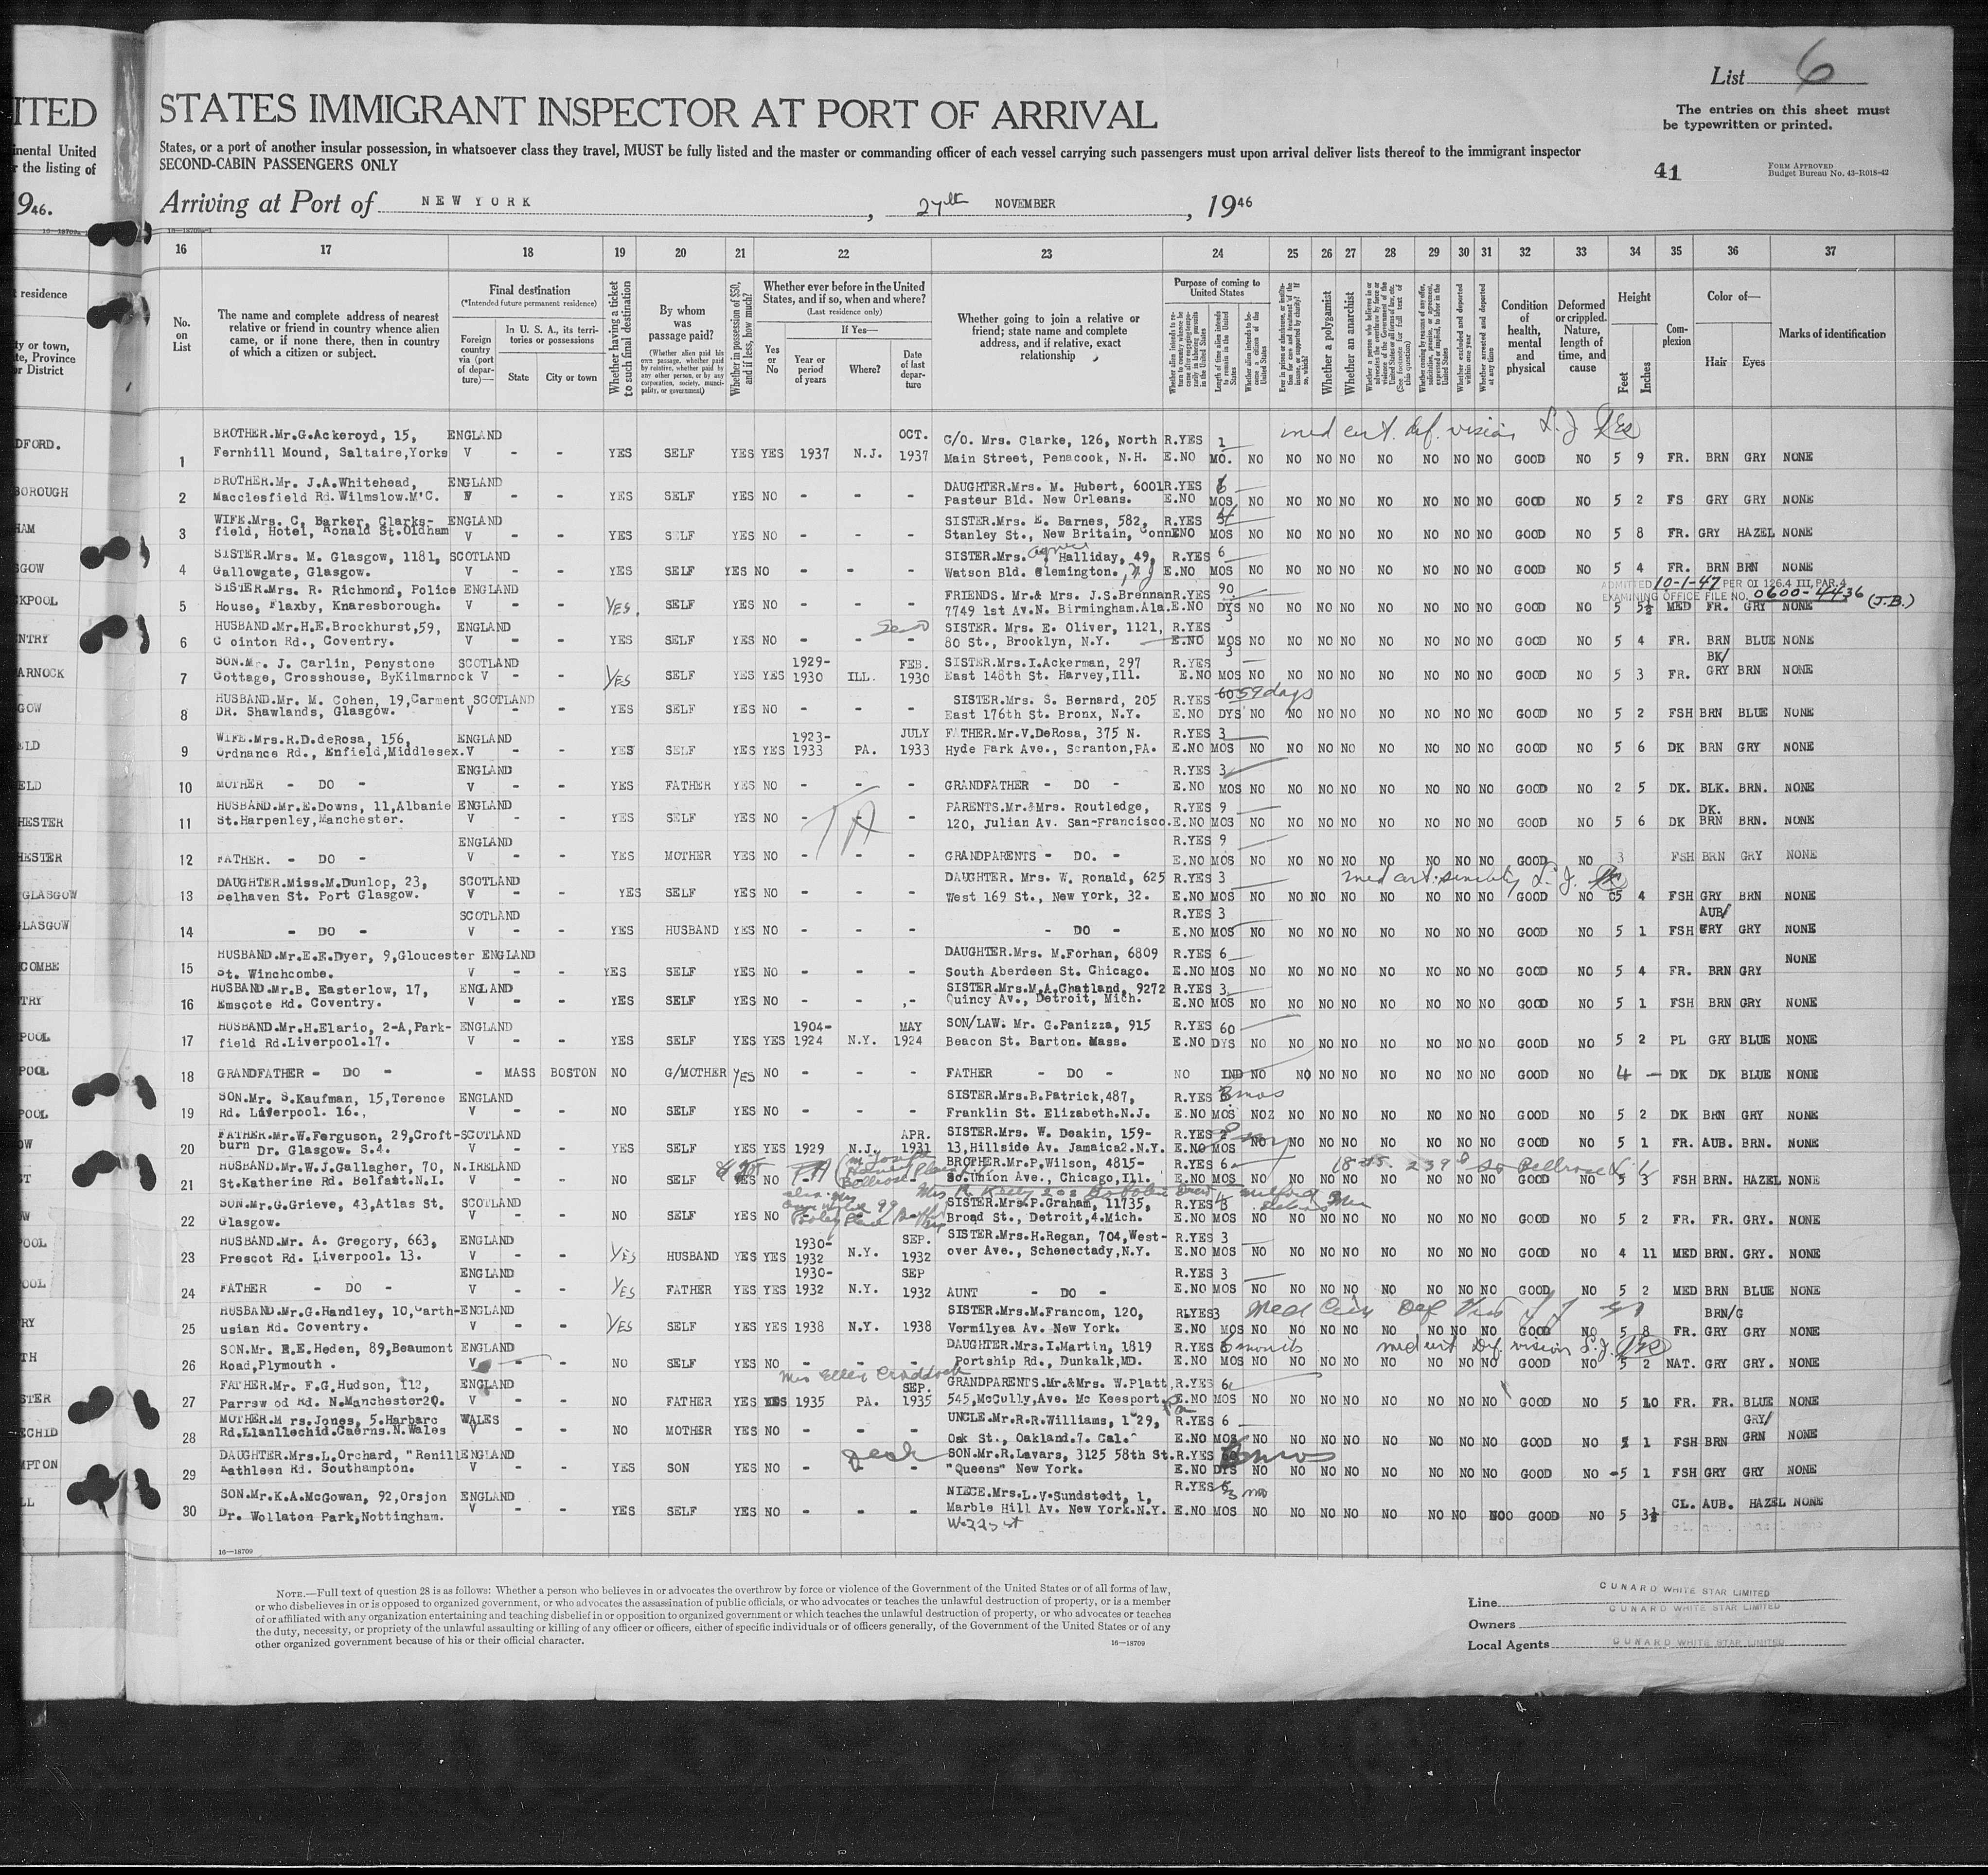 List 6
ITED STATES IMMIGRANT INSPECTOR AT PORT OF ARRIVAL
The entries on this sheet must
be typewritten or printed.
inental United States, or a port of another insular possession, in whatsoever class they travel, MUST be fully listed and the master or commanding officer of each vessel carrying such passengers must upon arrival deliver lists thereof to the immigrant inspector
r the listing of SECOND-CABIN PASSENGERS ONLY
41
FORM APPROVED
Budget Bureau No. 43-R018-42
946. Arriving at Port of NEW YORK, 27th NOVEMBER, 1946
16—18709a-1
16 17 18 19 20 21 22 23 24 25 26 27 28 29 30 31 32 33 34 35 36 37
No. on List
The name and complete address of nearest relative or friend in country whence alien came, or if none there, then in country of which a citizen or subject.
Final destination
(*Intended future permanent residence)
Foreign country via (port of departure)—
In U. S. A., its territories or possessions
State City or town
Whether having a ticket to such final destination
By whom was passage paid?
(Whether alien paid his own passage, whether paid by relative, whether paid by any other person, or by any corporation, society, municipality, or government)
Whether in possession of $50, and if less, how much?
Whether ever before in the United States, and if so, when and where?
(Last residence only)
Yes or No
If Yes—
Year or period of years Where? Date of last departure
Whether going to join a relative or friend; state name and complete address, and if relative, exact relationship
Purpose of coming to United States
Length of time alien intends to remain in the United States
Whether alien intends to become a citizen of the United States
Whether a polygamist
Whether an anarchist
Whether excluded and deported within one year
Whether arrested and deported at any time
Condition of health, mental and physical
Deformed or crippled. Nature, length of time, and cause
Height
Feet Inches
Complexion
Color of—
Hair Eyes
Marks of identification
med cert. def. vision S.J
1 BROTHER.Mr.G.Ackeroyd, 15, Fernhill Mound, Saltaire,Yorks ENGLAND V - - YES SELF YES YES 1937 N.J. OCT. 1937 C/O. Mrs. Clarke, 126, North Main Street, Penacook, N.H. R.YES E.NO 1 MO. NO NO NO NO NO NO NO NO GOOD NO 5 9 FR. BRN GRY NONE
2 BROTHER.Mr. J.A.Whitehead, Macclesfield Rd.Wilmslow.M'C. ENGLAND V - - YES SELF YES NO - - - DAUGHTER.Mrs. M. Hubert, 6001 Pasteur Bld. New Orleans. R.YES E.NO MOS NO NO NO NO NO NO NO NO GOOD NO 5 2 FS GRY GRY NONE
3 WIFE.Mrs. C. Barker, Clarksfield, Hotel, Ronald St.Oldham ENGLAND V - - YES SELF YES NO - - - SISTER.Mrs. E. Barnes, 582, Stanley St., New Britain, Conn R.YES E.NO MOS NO NO NO NO NO NO NO NO GOOD NO 5 8 FR. GRY HAZEL NONE
4 SISTER.Mrs. M. Glasgow, 1181, Gallowgate, Glasgow. SCOTLAND V - - YES SELF YES NO - - - SISTER.Mrs. Agnes Halliday, 49, Watson Bld. Clemington. N J R.YES E.NO 6 MOS NO NO NO NO NO NO NO NO GOOD NO 5 4 FR. BRN BRN NONE
ADMITTED 10-1-47 PER OI 126.4 III, PAR.4
EXAMINING OFFICE FILE NO. 0600-4436 (J.B.)
5 SISTER.Mrs. R. Richmond, Police House, Flaxby, Knaresborough. ENGLAND V - - YES. SELF YES NO - - - FRIENDS. Mr.& Mrs. J.S.Brennan 7749 1st Av.N. Birmingham.Ala. R.YES E.NO 90 DYS NO NO NO NO NO NO NO NO GOOD NO 5 5½ MED FR. GRY NONE
6 HUSBAND.Mr.H.E.Brockhurst,59, C ointon Rd., Coventry. ENGLAND V - - YES SELF YES NO - - - SISTER. Mrs. E. Oliver, 1121, 80 St., Brooklyn, N.Y. R.YES E.NO 3 MOS NO NO NO NO NO NO NO NO GOOD NO 5 4 FR. BRN BLUE NONE
7 SON.Mr. J. Carlin, Penystone Cottage, Crosshouse, ByKilmarnock SCOTLAND V - - YES SELF YES YES 1929-1930 ILL. FEB. 1930 SISTER.Mrs.I.Ackerman, 297 East 148th St. Harvey,Ill. R.YES E.NO 3 MOS NO NO NO NO NO NO NO NO GOOD NO 5 3 FR. BK/GRY BRN NONE
8 HUSBAND.Mr. M. Cohen, 19,Carment DR. Shawlands, Glasgow. SCOTLAND V - - YES SELF YES NO - - - SISTER.Mrs. S. Bernard, 205 East 176th St. Bronx, N.Y. R.YES E.NO 60 59 days DYS NO NO NO NO NO NO NO NO GOOD NO 5 2 FSH BRN BLUE NONE
9 WIFE.Mrs.R.D.deRosa, 156, Ordnance Rd., Enfield,Middlesex. ENGLAND V - - YES SELF YES YES 1923-1933 PA. JULY 1933 FATHER.Mr.V.DeRosa, 375 N. Hyde Park Ave., Scranton,PA. R.YES E.NO 3 MOS NO NO NO NO NO NO NO NO GOOD NO 5 6 DK BRN GRY NONE
10 MOTHER - DO - ENGLAND V - - YES FATHER YES NO - - - GRANDFATHER - DO - R.YES E.NO 3 MOS NO NO NO NO NO NO NO NO GOOD NO 2 5 DK. BLK. BRN. NONE
11 HUSBAND.Mr.E.Downs, 11,Albanie St.Harpenley,Manchester. ENGLAND V - - YES SELF YES NO - - - PARENTS.Mr.&Mrs. Routledge, 120, Julian Av. San-Francisco. R.YES E.NO 9 MOS NO NO NO NO NO NO NO NO GOOD NO 5 6 DK DK. BRN BRN. NONE
12 FATHER. - DO - ENGLAND V - - YES MOTHER YES NO - - - GRANDPARENTS - DO. - R.YES E.NO 9 MOS NO NO NO NO NO NO NO NO GOOD NO 3 FSH BRN GRY NONE
med cert. senility S.J.
13 DAUGHTER.Miss.M.Dunlop, 23, Belhaven St. Port Glasgow. SCOTLAND V - - YES SELF YES NO - - - DAUGHTER. Mrs. W. Ronald, 625 West 169 St., New York, 32. R.YES E.NO 3 MOS NO NO NO NO NO NO NO NO GOOD NO 5 4 FSH GRY BRN NONE
14 - DO - SCOTLAND V - - YES HUSBAND YES NO - - - - DO - R.YES E.NO 3 MOS NO NO NO NO NO NO NO NO GOOD NO 5 1 FSH AUB/GRY GRY NONE
15 HUSBAND.Mr.E.E.Dyer, 9,Gloucester St. Winchcombe. ENGLAND V - - YES SELF YES NO - - - DAUGHTER.Mrs. M.Forhan, 6809 South Aberdeen St. Chicago. R.YES E.NO 6 MOS NO NO NO NO NO NO NO NO GOOD NO 5 4 FR. BRN GRY NONE
16 HUSBAND.Mr.B. Easterlow, 17, Emscote Rd. Coventry. ENGLAND V - - YES SELF YES NO - - - SISTER.Mrs.M.A.Chatland, 9272 Quincy Av., Detroit, Mich. R.YES E.NO 3 MOS NO NO NO NO NO NO NO NO GOOD NO 5 1 FSH BRN GRY NONE
17 HUSBAND.Mr.H.Elario, 2-A,Parkfield Rd.Liverpool.17. ENGLAND V - - YES SELF YES YES 1904-1924 N.Y. MAY 1924 SON/LAW. Mr. G.Panizza, 915 Beacon St. Barton. Mass. R.YES E.NO 60 DYS NO NO NO NO NO NO NO NO GOOD NO 5 2 PL GRY BLUE NONE
18 GRANDFATHER - DO - - MASS BOSTON NO G/MOTHER YES NO - - - FATHER - DO - NO IND NO NO NO NO NO NO NO NO GOOD NO 4 — DK DK BLUE NONE
19 SON.Mr. S.Kaufman, 15,Terence Rd. Liverpool. 16., ENGLAND V - - NO SELF YES NO - - - SISTER.Mrs.B.Patrick,487, Franklin St. Elizabeth.N.J. R.YES E.NO 3mos MOS NO NO NO NO NO NO NO NO GOOD NO 5 2 DK BRN GRY NONE
20 FATHER.Mr.W.Ferguson, 29,Croftburn Dr. Glasgow. S.4. SCOTLAND V - - YES SELF YES YES 1929 N.J. APR. 1931 SISTER.Mrs. W. Deakin, 159-13,Hillside Av. Jamaica2.N.Y. R.YES E.NO MOS NO NO NO NO NO NO NO NO GOOD NO 5 1 FR. AUB. BRN. NONE
21 HUSBAND.Mr.W.J.Gallagher, 70, St.Katherine Rd. Belfast.N.I. N.IRELAND V - - NO SELF YES NO BROTHER.Mr.P.Wilson, 4815-So.Union Ave., Chicago,Ill. R.YES E.NO 6 MOS NO NO NO NO NO NO NO NO GOOD NO 5 3 FSH BRN. HAZEL NONE
22 SON.Mr.G.Grieve, 43,Atlas St. Glasgow. SCOTLAND V - - NO SELF YES NO SISTER.Mrs.P.Graham, 11735, Broad St., Detroit,4.Mich. R.YES E.NO MOS NO NO NO NO NO NO NO NO GOOD NO 5 2 FR. FR. GRY. NONE
23 HUSBAND.Mr. A. Gregory, 663, Prescot Rd. Liverpool. 13. ENGLAND V - - YES HUSBAND YES YES 1930-1932 N.Y. SEP. 1932 SISTER.Mrs.H.Regan, 704,Westover Ave., Schenectady,N.Y. R.YES E.NO 3 MOS NO NO NO NO NO NO NO NO GOOD NO 4 11 MED BRN. GRY. NONE
24 FATHER - DO - ENGLAND V - - YES FATHER YES YES 1930-1932 N.Y. SEP 1932 AUNT - DO - R.YES E.NO 3 MOS NO NO NO NO NO NO NO NO GOOD NO 5 2 MED BRN BLUE NONE
25 HUSBAND.Mr.G.Handley, 10,Carthusian Rd. Coventry. ENGLAND V - - YES SELF YES YES 1938 N.Y. 1938 SISTER.Mrs.M.Francom, 120, Vermilyea Av. New York. R.YES E.NO 3 MOS NO NO NO NO NO NO NO NO GOOD NO 5 8 FR. BRN/G GRY GRY NONE
med cert Def. vision S.J.
26 SON.Mr. R.E.Heden, 89,Beaumont Road,Plymouth . ENGLAND V - - NO SELF YES NO - - - DAUGHTER.Mrs.I.Martin, 1819 Portship Rd., Dunkalk,MD. R.YES E.NO 6 months MOS NO NO NO NO NO NO NO NO GOOD NO 5 2 NAT. GRY GRY. NONE
Mrs Ellen Craddock
27 FATHER.Mr. F.G.Hudson, 112, Parrsw od Rd. N.Manchester20. ENGLAND V - - NO FATHER YES YES 1935 PA. SEP. 1935 GRANDPARENTS.Mr.&Mrs. W.Platt, 545,McCully,Ave. Mc Keesport. Pa R.YES E.NO 6 MOS NO NO NO NO NO NO NO NO GOOD NO 5 10 FR. FR. BLUE NONE
28 MOTHER.M rs.Jones, 5.Harbarc Rd.Llanllechid.Caerns.N.Wales WALES V - - NO MOTHER YES NO - - - UNCLE.Mr.R.R.Williams, 1 29, Oak St., Oakland.7. Cal. R.YES E.NO 6 MOS NO NO NO NO NO NO NO NO GOOD NO 5 1 FSH BRN GRY/GRN NONE
29 DAUGHTER.Mrs.L.Orchard, "Renill Kathleen Rd. Southampton. ENGLAND V - - YES SON YES NO - - - SON.Mr.R.Lavars, 3125 58th St. "Queens" New York. R.YES E.NO 6mos DYS NO NO NO NO NO NO NO NO GOOD NO 5 1 FSH GRY GRY NONE
30 SON.Mr.K.A.McGowan, 92,Orsjon Dr. Wollaton Park,Nottingham. ENGLAND V - - YES SELF YES NO - - - NIECE.Mrs.L.V.Sundstedt, 1, Marble Hill Av. New York.N.Y. R.YES E.NO 3 mo MOS NO NO NO NO NO NO NO GOOD NO 5 3½ CL. AUB. HAZEL NONE
W.225 st
16—18709
NOTE.—Full text of question 28 is as follows: Whether a person who believes in or advocates the overthrow by force or violence of the Government of the United States or of all forms of law,
or who disbelieves in or is opposed to organized government, or who advocates the assassination of public officials, or who advocates or teaches the unlawful destruction of property, or is a member
of or affiliated with any organization entertaining and teaching disbelief in or opposition to organized government or which teaches the unlawful destruction of property, or who advocates or teaches
the duty, necessity, or propriety of the unlawful assaulting or killing of any officer or officers, either of specific individuals or of officers generally, of the Government of the United States or of any
other organized government because of his or their official character.
16—18709
Line CUNARD WHITE STAR LIMITED
Owners CUNARD WHITE STAR LIMITED
Local Agents CUNARD WHITE STAR LIMITED